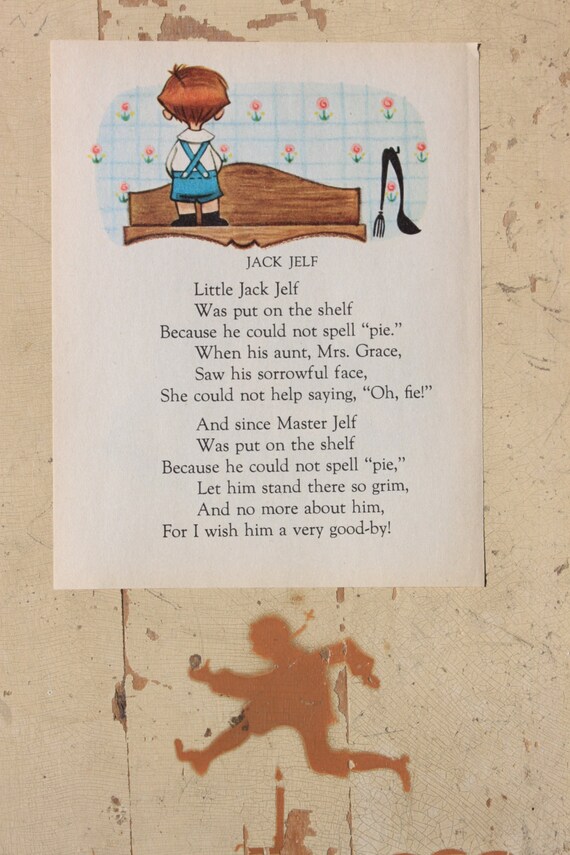 JACK JELF
Little Jack Jelf
Was put on the shelf
Because he could not spell “pie.”
When his aunt, Mrs. Grace,
Saw his sorrowful face,
She could not help saying, “Oh, fie!”
And since Master Jelf
Was put on the shelf
Because he could not spell “pie,”
Let him stand there so grim,
And no more about him,
For I wish him a very good-by!